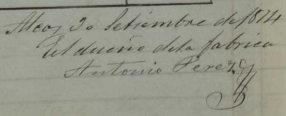 Alcoy 20 Setiembre de 1874
El dueño de la fabrica
Antonio Perez